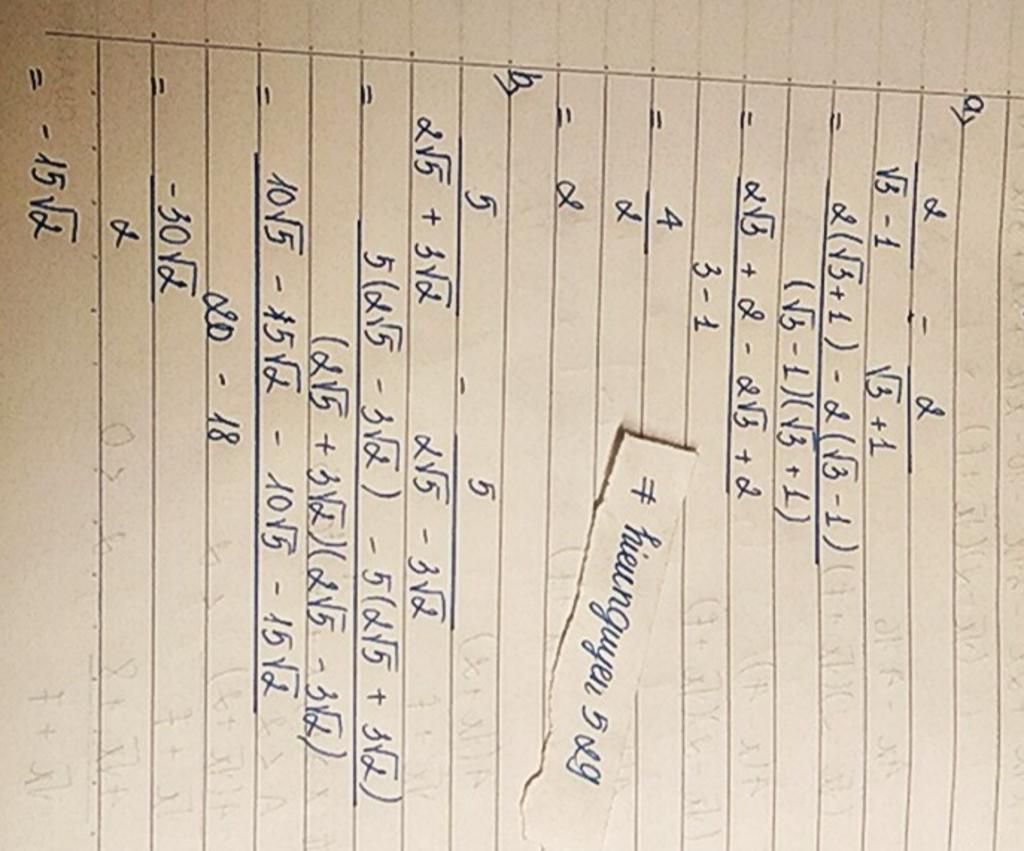 a)
2/(√3 - 1) - 2/(√3 + 1)
= (2(√3+1) - 2(√3 - 1))/((√3 - 1)(√3 + 1))
= (2√3 + 2 - 2√3 + 2)/(3 - 1)
= 4/2
= 2
b)
5/(2√5 + 3√2) - 5/(2√5 - 3√2)
= (5(2√5 - 3√2) - 5(2√5 + 3√2))/((2√5 + 3√2)(2√5 - 3√2))
= (10√5 - 15√2 - 10√5 - 15√2)/(20 - 18)
= -30√2/2
= -15√2
# hieunguyen 529